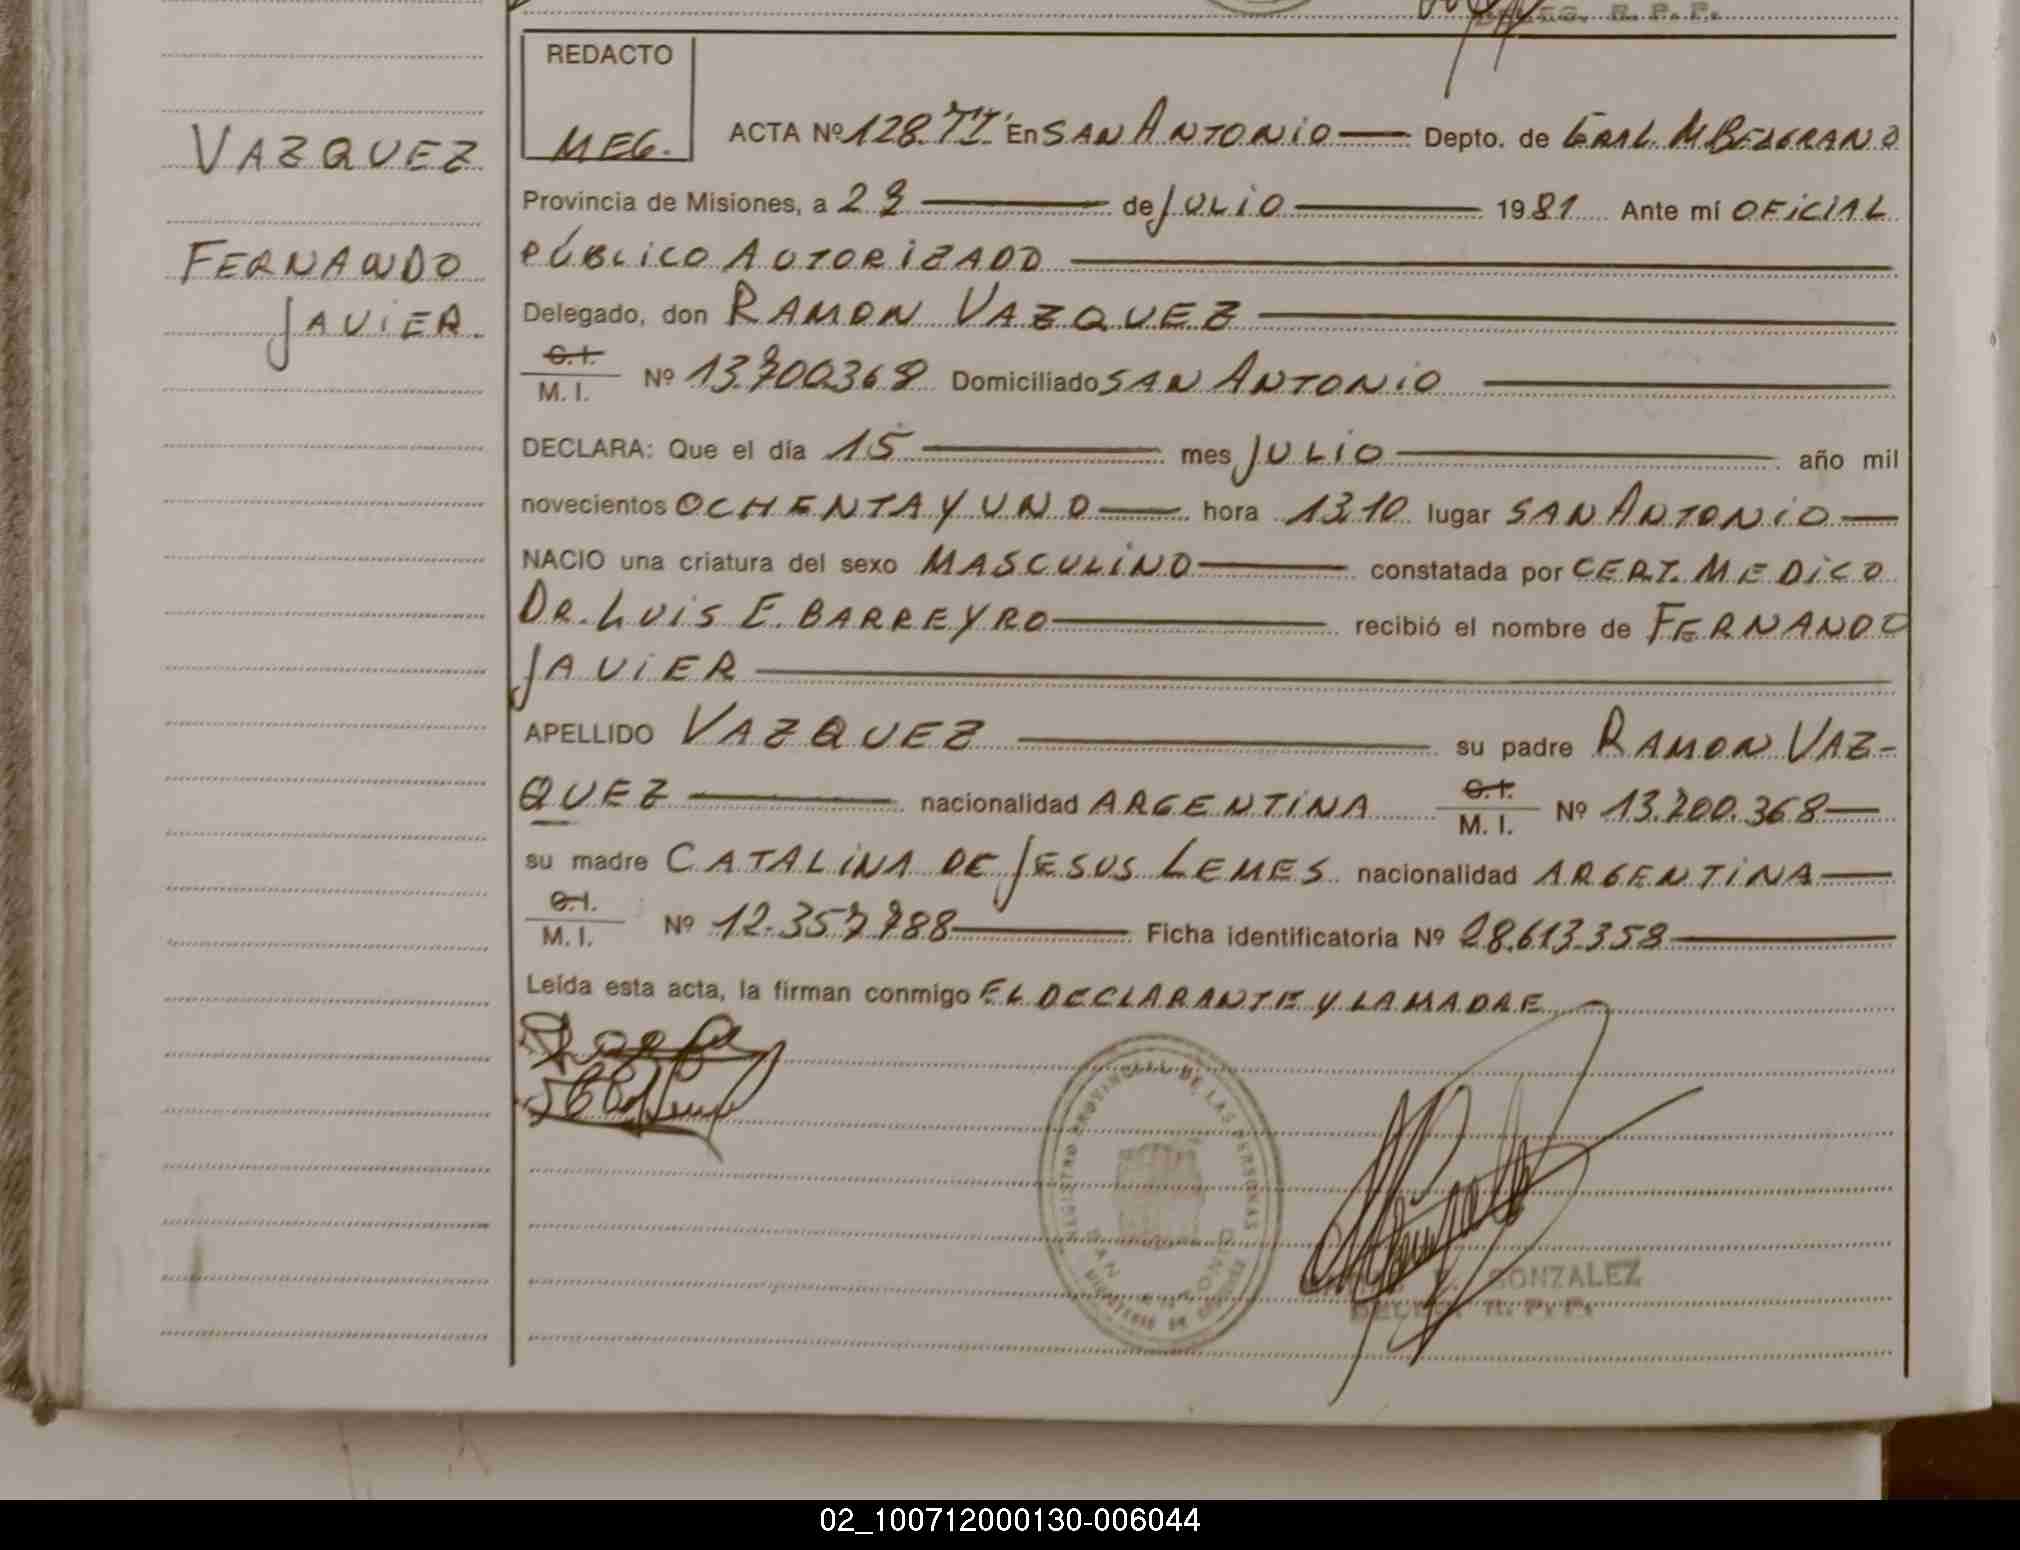 DELEG. R. P. P.
REDACTO
VAZQUEZ
FERNANDO
JAVIER.
MEG. ACTA Nº 128. TI. En SAN ANTONIO Depto. de GRAL. M BELGRANO
Provincia de Misiones, a 29 de JULIO 1981 Ante mí OFICIAL
PÚBLICO AUTORIZADO
Delegado, don RAMON VAZQUEZ
C.I.
M. I. Nº 13.700.368 Domiciliado SAN ANTONIO
DECLARA: Que el día 15 mes JULIO año mil
novecientos OCHENTA Y UNO hora 13.10 lugar SAN ANTONIO
NACIO una criatura del sexo MASCULINO constatada por CERT. MEDICO
DR. LUIS E. BARREYRO recibió el nombre de FERNANDO
JAVIER
APELLIDO VAZQUEZ su padre RAMON VAZ-
QUEZ nacionalidad ARGENTINA C.I.
M. I. Nº 13.700.368
su madre CATALINA DE JESUS LEMES nacionalidad ARGENTINA
C.I.
M. I. Nº 12.357.788 Ficha identificatoria Nº 28.613.358
Leída esta acta, la firman conmigo EL DECLARANTE Y LA MADRE
REGISTRO PROVINCIAL DE LAS PERSONAS
SAN ANTONIO
GONZALEZ
DELEG. R. P. P.
02_100712000130-006044